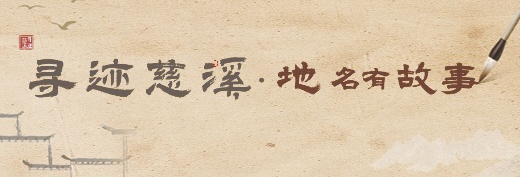 寻迹慈溪·地名有故事